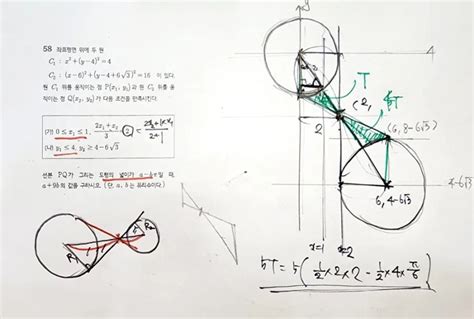 58 좌표평면 위에 두 원
C₁ : x²+(y-4)²=4
C₂ : (x-6)²+(y-4+6√3)²=16 이 있다.
원 C₁ 위를 움직이는 점 P(x₁, y₁)과 원 C₂ 위를 움직이는 점 Q(x₂, y₂)가 다음 조건을 만족시킨다.
(가) 0≤x₁≤1, (2x₁+x₂)/3 = 2
(나) y₁≤4, y₂≥4-6√3
선분 PQ가 그리는 도형의 넓이가 a-bπ일 때,
a+9b의 값을 구하시오. (단, a, b는 유리수이다.)
2+1
y
4
T
2
5T
(6, 8-6√3)
6, 4-6√3
4-6√3
x=1
x=2
R₁
R₂
5T = 5(½×2×2 - ½×4×π/6)